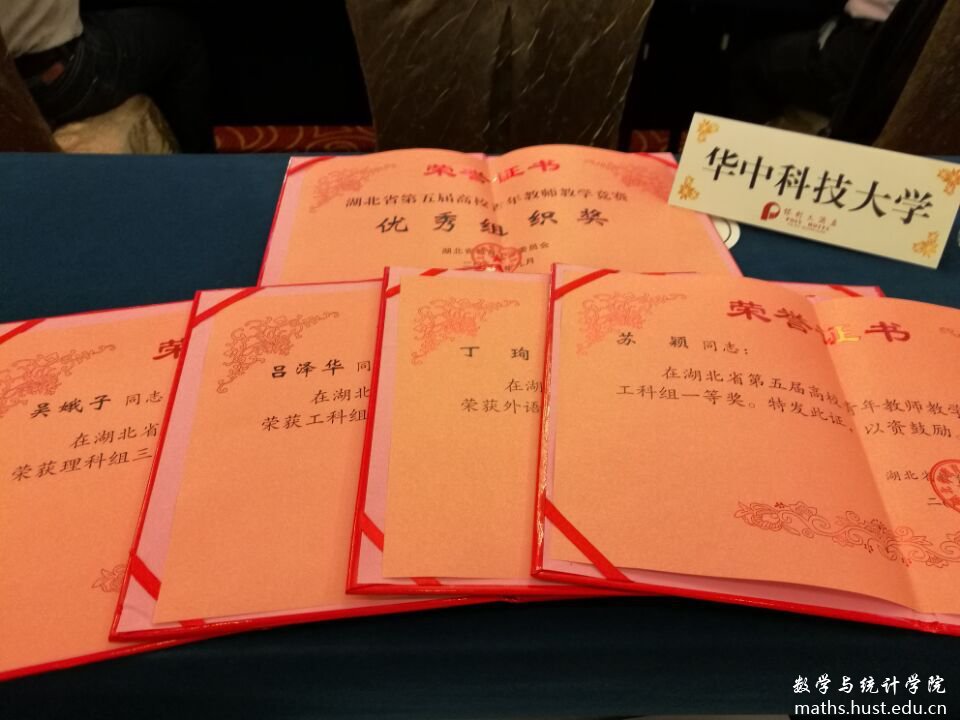 荣誉证书
湖北省第五届高校青年教师教学竞赛
优秀组织奖
华中科技大学
吴娥子 同志
在湖北省
荣获理科组三
吕泽华 同
在湖
荣获工科组
丁 珣
在湖
荣获外语
荣誉证书
苏 颖 同志:
在湖北省第五届高校青年教师教学
工科组一等奖。特发此证,以资鼓励
湖北省
数学与统计学院
maths.hust.edu.cn